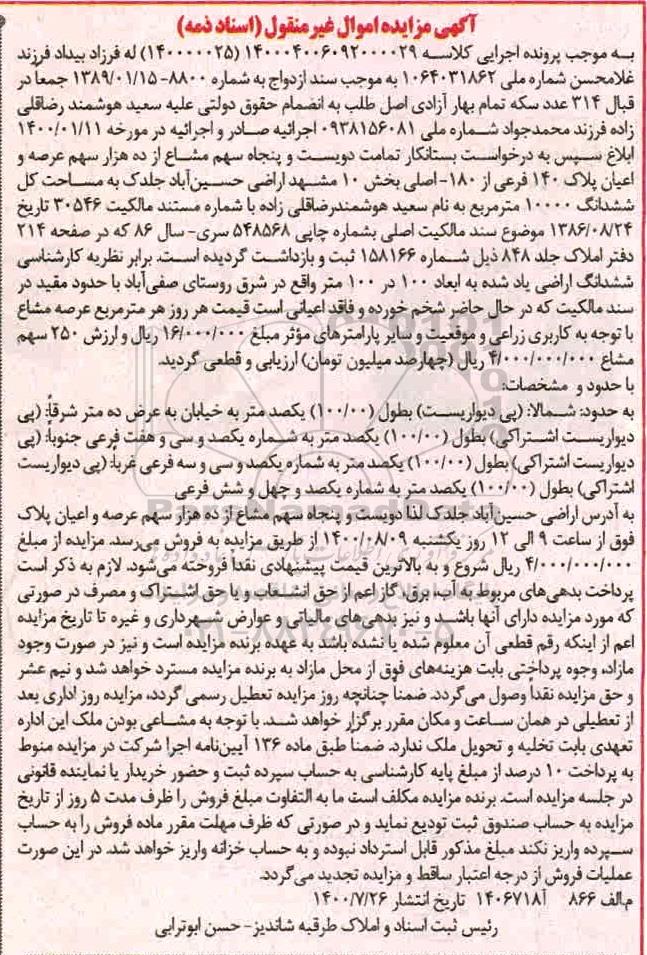 آگهی مزایده اموال غیر منقول (اسناد ذمه)
به موجب پرونده اجرایی کلاسه ۱۴۰۰۰۴۰۰۶۰۹۲۰۰۰۰۲۹ (۱۴۰۰۰۰۰۲۵) له فرزاد بیداد فرزند
غلامحسن شماره ملی ۱۰۶۴۰۳۱۸۶۲ به موجب سند ازدواج به شماره ۸۸۰۰- ۱۳۸۹/۰۱/۱۵ جمعاً در
قبال ۳۱۴ عدد سکه تمام بهار آزادی اصل طلب به انضمام حقوق دولتی علیه سعید هوشمند رضاقلی
زاده فرزند محمدجواد شماره ملی ۰۹۳۸۱۵۶۰۸۱ اجرائیه صادر و اجرائیه در مورخه ۱۴۰۰/۰۱/۱۱
ابلاغ سپس به درخواست بستانکار تمامت دویست و پنجاه سهم مشاع از ده هزار سهم عرصه و
اعیان پلاک ۱۴۰ فرعی از ۱۸۰- اصلی بخش ۱۰ مشهد اراضی حسین‌آباد جلدک به مساحت کل
ششدانگ ۱۰۰۰۰ مترمربع به نام سعید هوشمندرضاقلی زاده با شماره مستند مالکیت ۳۰۵۴۶ تاریخ
۱۳۸۶/۰۸/۲۴ موضوع سند مالکیت اصلی بشماره چاپی ۵۴۸۵۶۸ سری- سال ۸۶ که در صفحه ۲۱۴
دفتر املاک جلد ۸۴۸ ذیل شماره ۱۵۸۱۶۶ ثبت و بازداشت گردیده است. برابر نظریه کارشناسی
ششدانگ اراضی یاد شده به ابعاد ۱۰۰ در ۱۰۰ متر واقع در شرق روستای صفی‌آباد با حدود مقید در
سند مالکیت که در حال حاضر شخم خورده و فاقد اعیانی است قیمت هر روز هر مترمربع عرصه مشاع
با توجه به کاربری زراعی و موقعیت و سایر پارامترهای مؤثر مبلغ ۱۶/۰۰۰/۰۰۰ ریال و ارزش ۲۵۰ سهم
مشاع ۴/۰۰۰/۰۰۰/۰۰۰ ریال (چهارصد میلیون تومان) ارزیابی و قطعی گردید.
با حدود و مشخصات:
به حدود: شمالا: (پی دیواریست) بطول (۱۰۰/۰۰) یکصد متر به خیابان به عرض ده متر شرقاً: (پی
دیواریست اشتراکی) بطول (۱۰۰/۰۰) یکصد متر به شماره یکصد و سی و هفت فرعی جنوباً: (پی
دیواریست اشتراکی) بطول (۱۰۰/۰۰) یکصد متر به شماره یکصد و سی و سه فرعی غرباً: (پی دیواریست
اشتراکی) بطول (۱۰۰/۰۰) یکصد متر به شماره یکصد و چهل و شش فرعی
به آدرس اراضی حسین‌آباد جلدک لذا دویست و پنجاه سهم مشاع از ده هزار سهم عرصه و اعیان پلاک
فوق از ساعت ۹ الی ۱۲ روز یکشنبه ۱۴۰۰/۰۸/۰۹ از طریق مزایده به فروش می‌رسد. مزایده از مبلغ
۴/۰۰۰/۰۰۰/۰۰۰ ریال شروع و به بالاترین قیمت پیشنهادی نقدا فروخته می‌شود. لازم به ذکر است
پرداخت بدهی‌های مربوط به آب، برق، گاز اعم از حق انشعاب و یا حق اشتراک و مصرف در صورتی
که مورد مزایده دارای آنها باشد و نیز بدهی‌های مالیاتی و عوارض شهرداری و غیره تا تاریخ مزایده
اعم از اینکه رقم قطعی آن معلوم شده یا نشده باشد به عهده برنده مزایده است و نیز در صورت وجود
مازاد، وجوه پرداختی بابت هزینه‌های فوق از محل مازاد به برنده مزایده مسترد خواهد شد و نیم عشر
و حق مزایده نقداً وصول می‌گردد. ضمناً چنانچه روز مزایده تعطیل رسمی گردد، مزایده روز اداری بعد
از تعطیلی در همان ساعت و مکان مقرر برگزار خواهد شد. با توجه به مشاعی بودن ملک این اداره
تعهدی بابت تخلیه و تحویل ملک ندارد. ضمناً طبق ماده ۱۳۶ آیین‌نامه اجرا شرکت در مزایده منوط
به پرداخت ۱۰ درصد از مبلغ پایه کارشناسی به حساب سپرده ثبت و حضور خریدار یا نماینده قانونی
در جلسه مزایده است. برنده مزایده مکلف است ما به التفاوت مبلغ فروش را ظرف مدت ۵ روز از تاریخ
مزایده به حساب صندوق ثبت تودیع نماید و در صورتی که ظرف مهلت مقرر مانده فروش را به حساب
سپرده واریز نکند مبلغ مذکور قابل استرداد نبوده و به حساب خزانه واریز خواهد شد. در این صورت
عملیات فروش از درجه اعتبار ساقط و مزایده تجدید می‌گردد.
م.الف ۸۶۶ آ۱۴۰۶۷۱۸ تاریخ انتشار ۱۴۰۰/۷/۲۶
رئیس ثبت اسناد و املاک طرقبه شاندیز- حسن ابوترابی